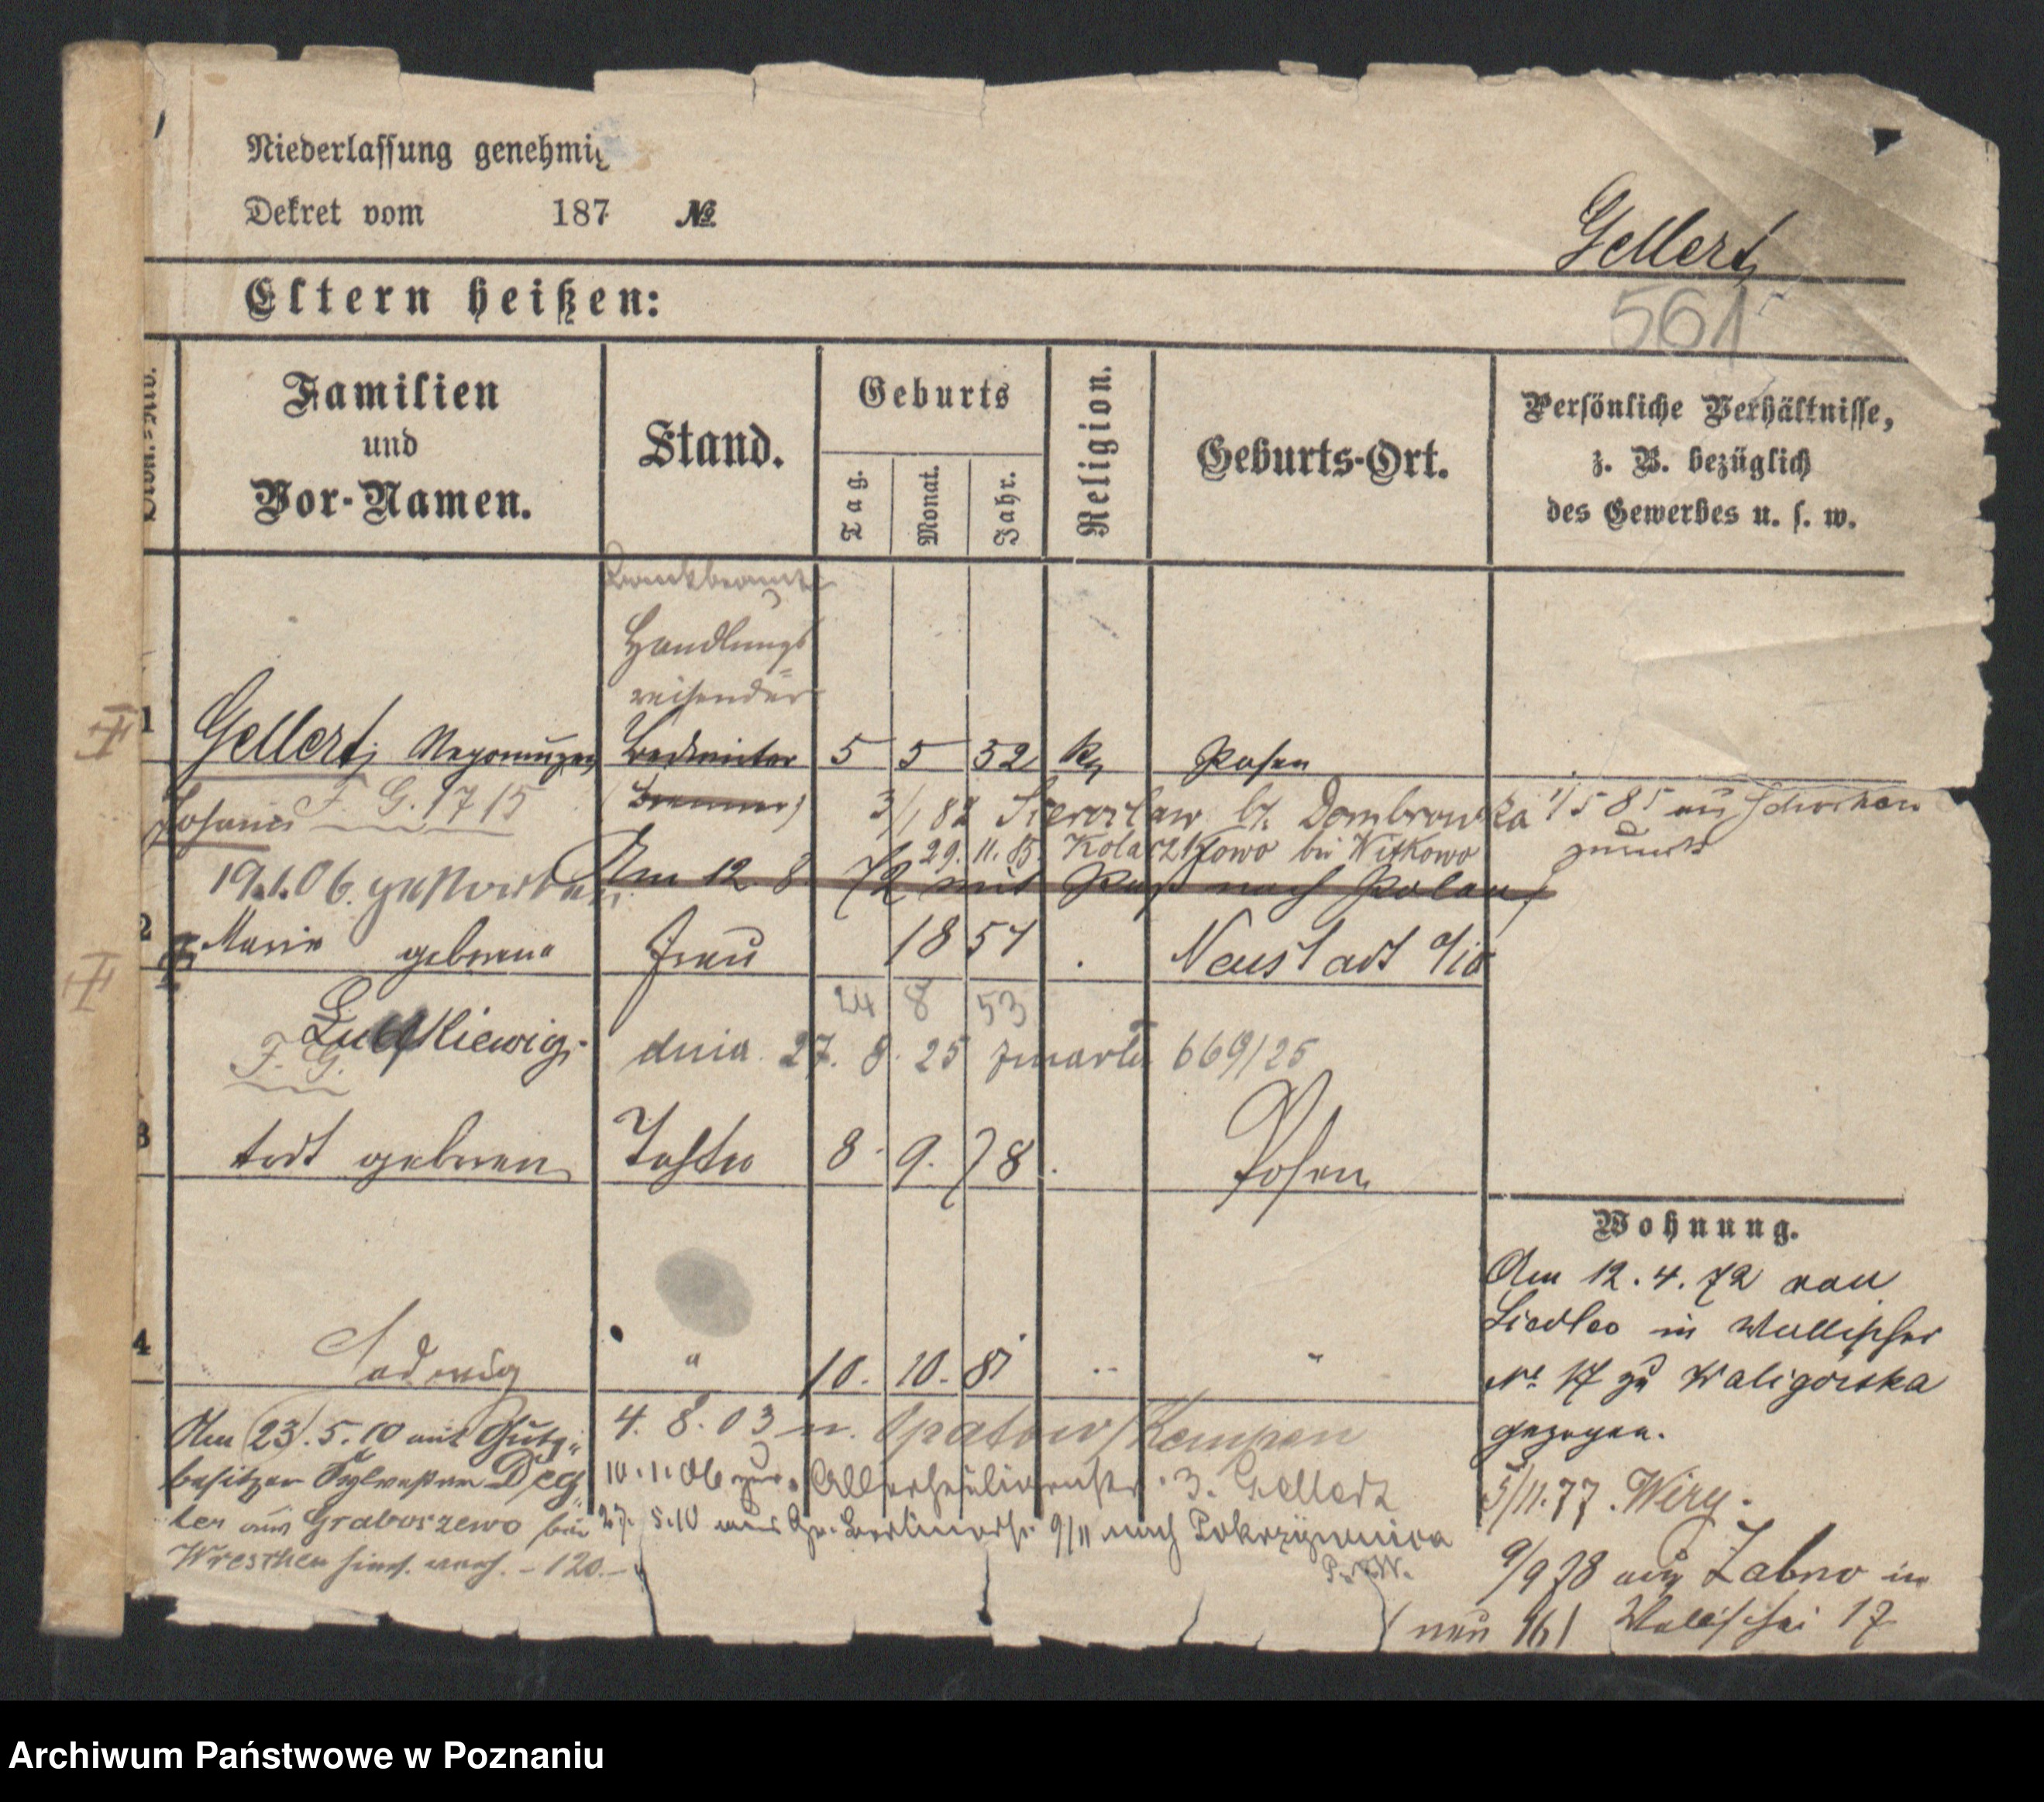 Niederlassung genehmig
Dekret vom 187 №
Gellert
Eltern heißen:
561
Familien und Vor-Namen.
Stand.
Geburts
Tag.
Monat.
Jahr.
Religion.
Geburts-Ort.
Persönliche Verhältnisse,
z. B. bezüglich
des Gewerbes u. s. w.
Handlungs
reisender
1 Gellert, 5 5 52 k. Posen
Johann F. G. 1715 3/1 82 b/. Dombrowka 1/5 85 aus Schocken
29. 11. 85. Kolaczkowo bei Witkowo zurück
19.1.06. gestorben. Am 12. 8. 72 mit Paß nach Polen
2 Marie geborene Frau 18 54 Neustadt
24 8 53
Ludkiewicz
F. G. dnia 27. 8. 25 zmarła 669/25
3 todt geboren Tochter 8. 9. 78. Posen
Wohnung.
Am 12. 4. 72 von
in Wallischei
4 Hedwig " 10. 10. 81 "
№ 17 zu Waligórska
gezogen.
Am 23. 5. 10 mit Guts-
besitzer Sylvester
aus Graboszewo bei
Wreschen - 120. -
4. 8. 03 n. Opatow/Kempen
10. 1. 06 zur. Allerheiligenstr. 3. Gellert
27. 5. 10 aus Gr. Berlinerstr. 9/11 nach Pokrzywnica
5/11. 77. Wiry.
9/9 78 aus Zabno in
Wallischei 17